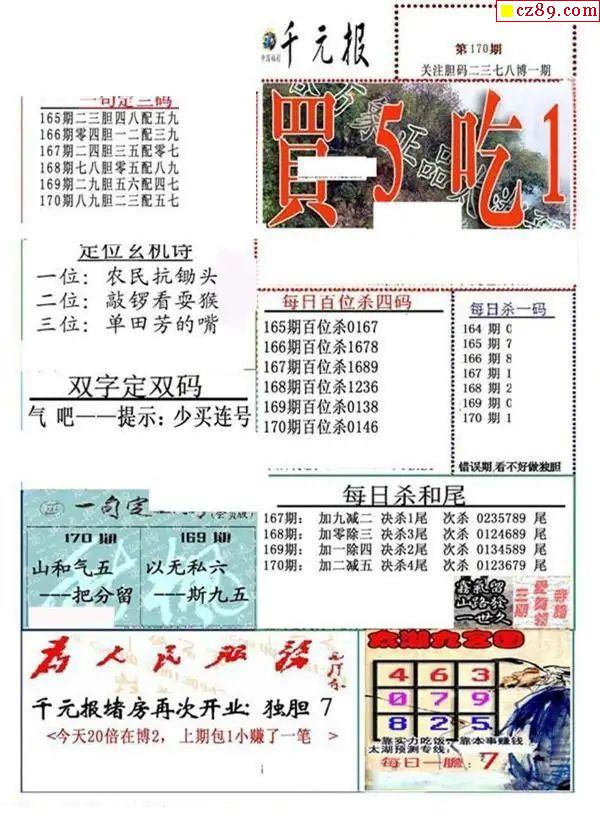 cz89.com
千元报
第170期
关注胆码二三七八博一期
一句定三码
165期二三胆四八配五九
166期零四胆一二配三九
167期二四胆三五配零七
168期七八胆零五配八九
169期二九胆五六配四七
170期八九胆二三配五七
買5吃1
定位玄机诗
一位：农民抗锄头
二位：敲锣看耍猴
三位：单田芳的嘴
每日百位杀四码
165期百位杀0167
166期百位杀1678
167期百位杀1689
168期百位杀1236
169期百位杀0138
170期百位杀0146
每日杀一码
164期0
165期7
166期8
167期1
168期2
169期0
170期1
错误期,看不好做独胆
双字定双码
气 吧——提示：少买连号
每日杀和尾
167期： 加九减二 决杀1尾 次杀 0235789 尾
168期： 加零除三 决杀3尾 次杀 0124689 尾
169期： 加一除四 决杀2尾 次杀 0134589 尾
170期： 加二减五 决杀4尾 次杀 0123679 尾
一句定
170期
山和气五
---把分留
169期
以无私六
---斯九五
为人民服务
千元报堵房再次开业：独胆 7
<今天20倍在博2，上期包1小赚了一笔 >
太湖九宫图
4 6 3
0 7 9
8 2 5
靠实力吃饭，靠本事赚钱
太湖预测专线：
每日一胆：7